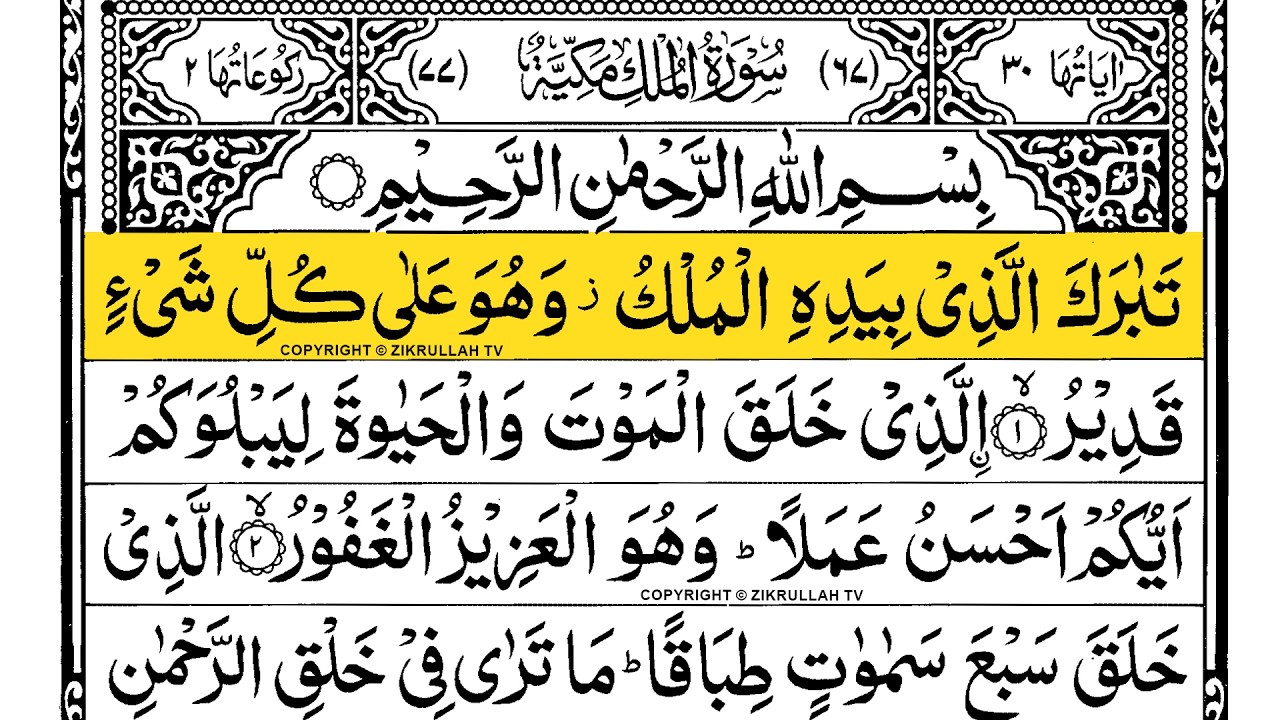 اٰيَاتُهَا ٣٠ (٦٧) سُوْرَةُ الْمُلْكِ مَكِّيَّةٌ (٧٧) رُكُوْعَاتُهَا ٢
بِسْمِ اللّٰهِ الرَّحْمٰنِ الرَّحِيْمِ
تَبٰرَكَ الَّذِىْ بِيَدِهِ الْمُلْكُ ز وَهُوَ عَلٰى كُلِّ شَىْءٍ
COPYRIGHT © ZIKRULLAH TV
قَدِيْرُ ۙ﴿١﴾ نِ الَّذِىْ خَلَقَ الْمَوْتَ وَالْحَيٰوةَ لِيَبْلُوَكُمْ
اَيُّكُمْ اَحْسَنُ عَمَلًا ؕ وَهُوَ الْعَزِيْزُ الْغَفُوْرُ ۙ﴿٢﴾ الَّذِىْ
COPYRIGHT © ZIKRULLAH TV
خَلَقَ سَبْعَ سَمٰوٰتٍ طِبَاقًا ؕ مَا تَرٰى فِىْ خَلْقِ الرَّحْمٰنِ